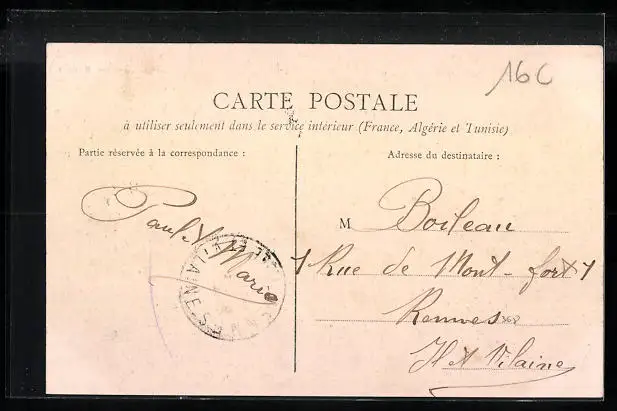 16C
CARTE POSTALE
à utiliser seulement dans le service intérieur (France, Algérie et Tunisie)
Partie réservée à la correspondance :
Adresse du destinataire :
Paul et Marie
M Boileau
7 Rue de Mont-fort 7
Rennes
Il et Vilaine
VILAINE